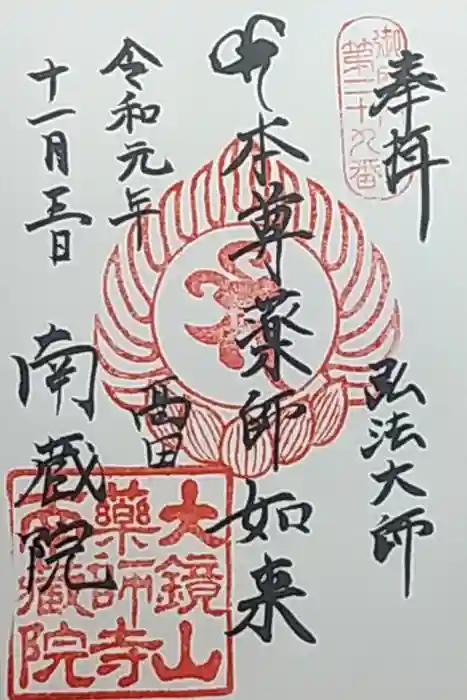 奉拝
第二十九番
弘法大師
本尊薬師如来
令和元年
十一月三日
高田
南蔵院
大鏡山
薬師寺
南蔵院